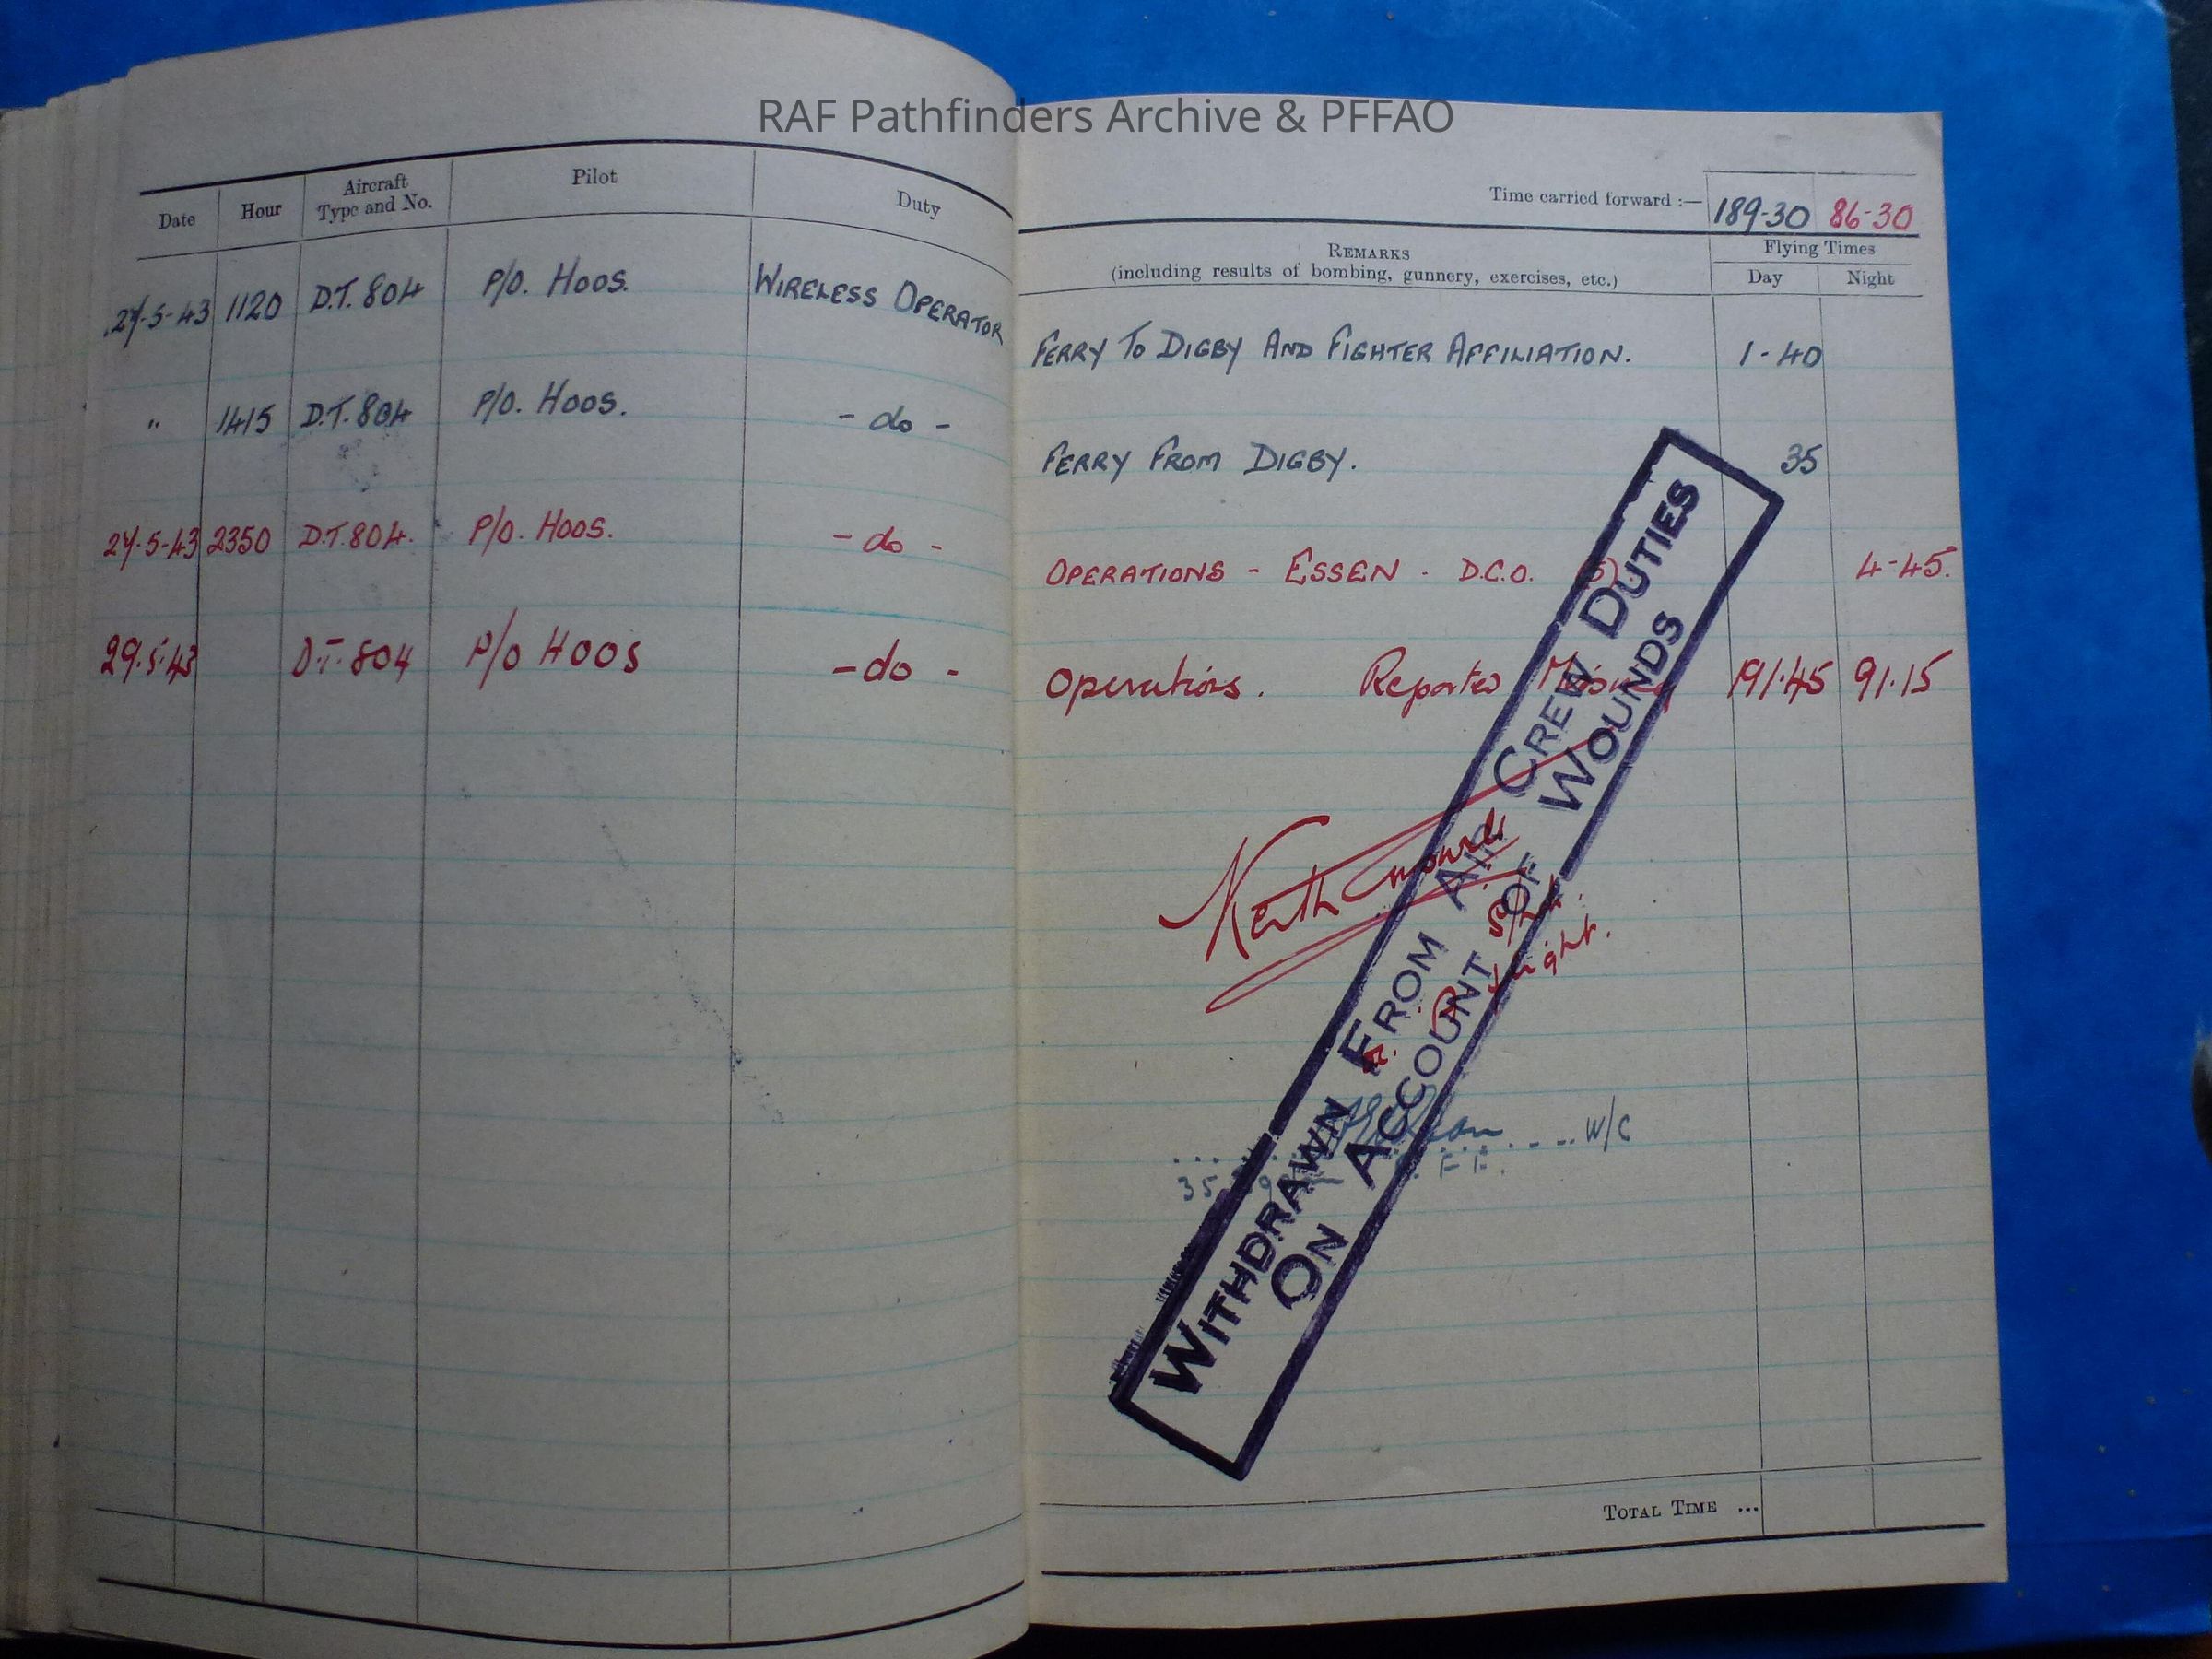 RAF Pathfinders Archive & PFFAO
Time carried forward :— 189-30 86-30
Date Hour Aircraft Type and No. Pilot Duty
REMARKS
(including results of bombing, gunnery, exercises, etc.)
Flying Times
Day Night
27-5-43 1120 D.T. 804 P/O. HOOS. WIRELESS OPERATOR FERRY TO DIGBY AND FIGHTER AFFILIATION. 1-40
" 1415 D.T. 804 P/O. HOOS. - do - FERRY FROM DIGBY. 35
27-5-43 2350 D.T. 804. P/O. HOOS. - do - OPERATIONS - ESSEN - D.C.O. 4-45.
29.5.43 D.T. 804 P/O HOOS - do - Operations. Reported Missing 191.45 91.15
Keith
Flight.
W/C
35
WITHDRAWN FROM AIR CREW DUTIES
ON ACCOUNT OF WOUNDS
TOTAL TIME ...